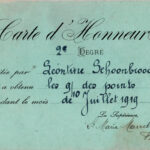 Carte d'Honneur
2e DEGRÉ
par Léontine Schoonbroo
a obtenu les 9/10 des points
dant le mois de 10 Juillet 1919
La Supérieure,
Sr Marie